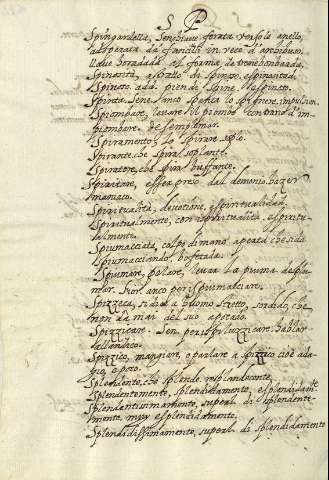 S P
Spingardella, Senchiave forata verso la anello,
adoperata da fanciuli in vece d'archibuso,
llave horadada a forma de
Spinosità, astratto di Spinoso, espinosidad.
Spinoso, add. pien de Spine, espinoso.
Spinta, Sen. anco Spinta lo Spignere, impulsion.
Spiombare, levare il piombo contrario d'im-
piombare, desemplomar.
Spiramento, lo Spirare, soplo.
Spirante, che Spira, soplante.
Spiratore, che Spira, buffante.
Spiritare, esser preso dal demonio, hazer
maniaco.
Spiritualità, devotione, espiritualidad.
Spiritualmente, con ispiritualità, espiritu-
almente.
Spiumacciata, colpo di mano aperta che si da
spiumacciando, bofetada.
Spiumare, pelare, levar la piuma, desplu-
mar. Sior. anco per ispiumacciare.
Spizzeca, si dice a Huomo stretto, sordido, che
non da mai del suo, apretado.
Spizzicare. Sen. per ispiluzzicare, hablar
Spizzico, mangiare, o parlare a Spizzico cioè ada-
gio, a poco.
Splendente, che Splende, resplandeciente.
Splendentemente, Splendidamente, esplendidamte
Splendentissimamente, superl. di Splendente-
mente, muy esplendidamente.
Splendidissimamente, superl. di Splendidamente